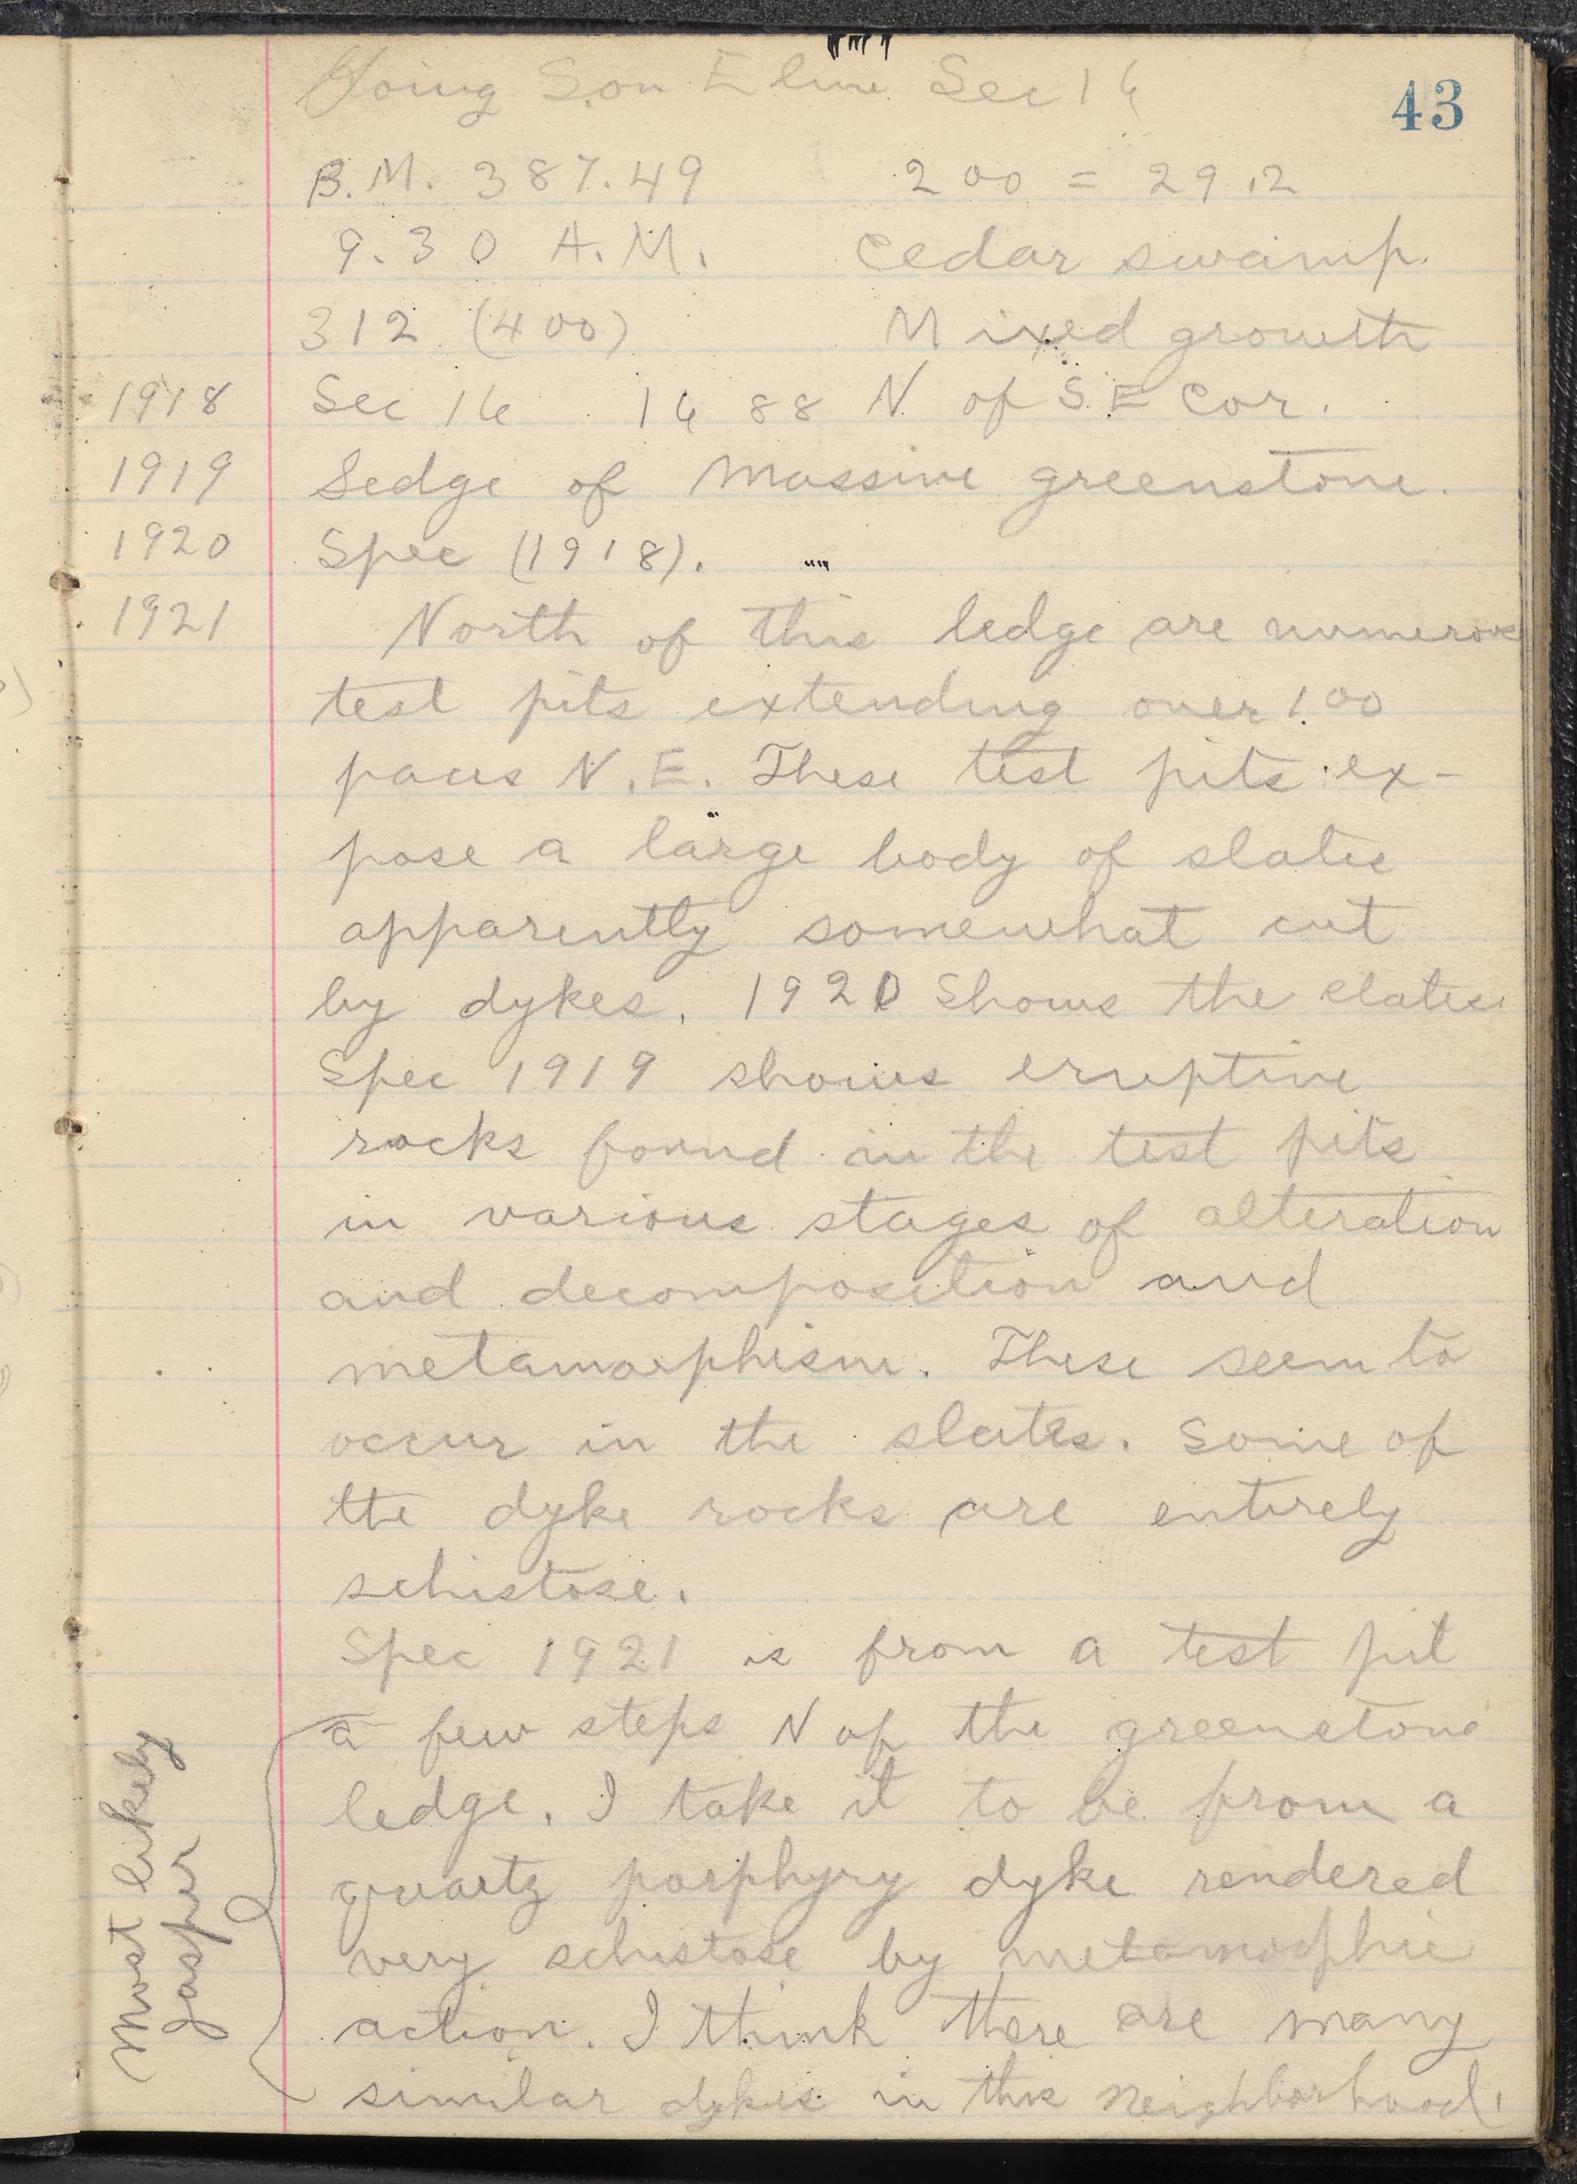 43
Going S on E line Sec 16
B.M. 387.49 200 = 29.12
9.30 A.M. Cedar swamp.
312 (400) Mixed growth
1918 Sec 16 1688 N of S E Cor.
1919 Ledge of Massive greenstone.
1920 Spec (1918).
1921 North of this ledge are numerous
test pits extending over 100
paces N.E. These test pits ex-
pose a large body of slates
apparently somewhat cut
by dykes. 1920 Shows the slates.
Spec 1919 shows eruptive
rocks found in the test pits
in various stages of alteration
and decomposition and
metamorphism. These seem to
occur in the slates. Some of
the dyke rocks are entirely
schistose.
Spec 1921 is from a test pit
a few steps N of the greenstone
ledge. I take it to be from a
quartz porphyry dyke rendered
very schistose by metamorphic
action. I think there are many
similar dykes in this neighborhood.
Most likely
Jasper